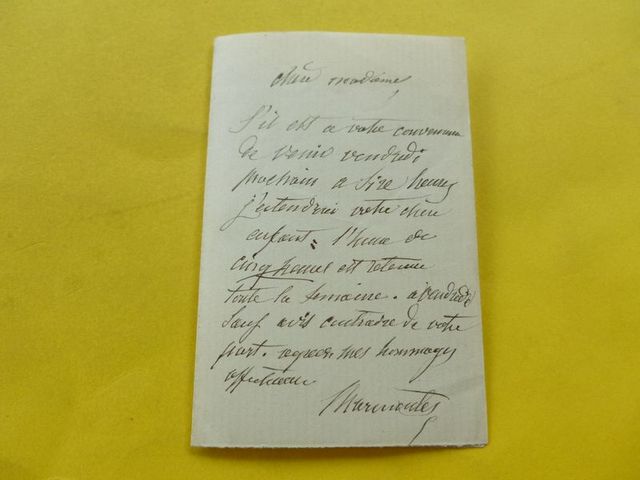 chère madame
S'il est a votre convenance
de venir vendredi
prochain a Six heures
j'entendrai votre chère
enfant. l'heure de
cinq heures est retenue
toute la semaine. a vendredi
sauf avis contraire de votre
part. agréez mes hommages
affectueux
Marmontel